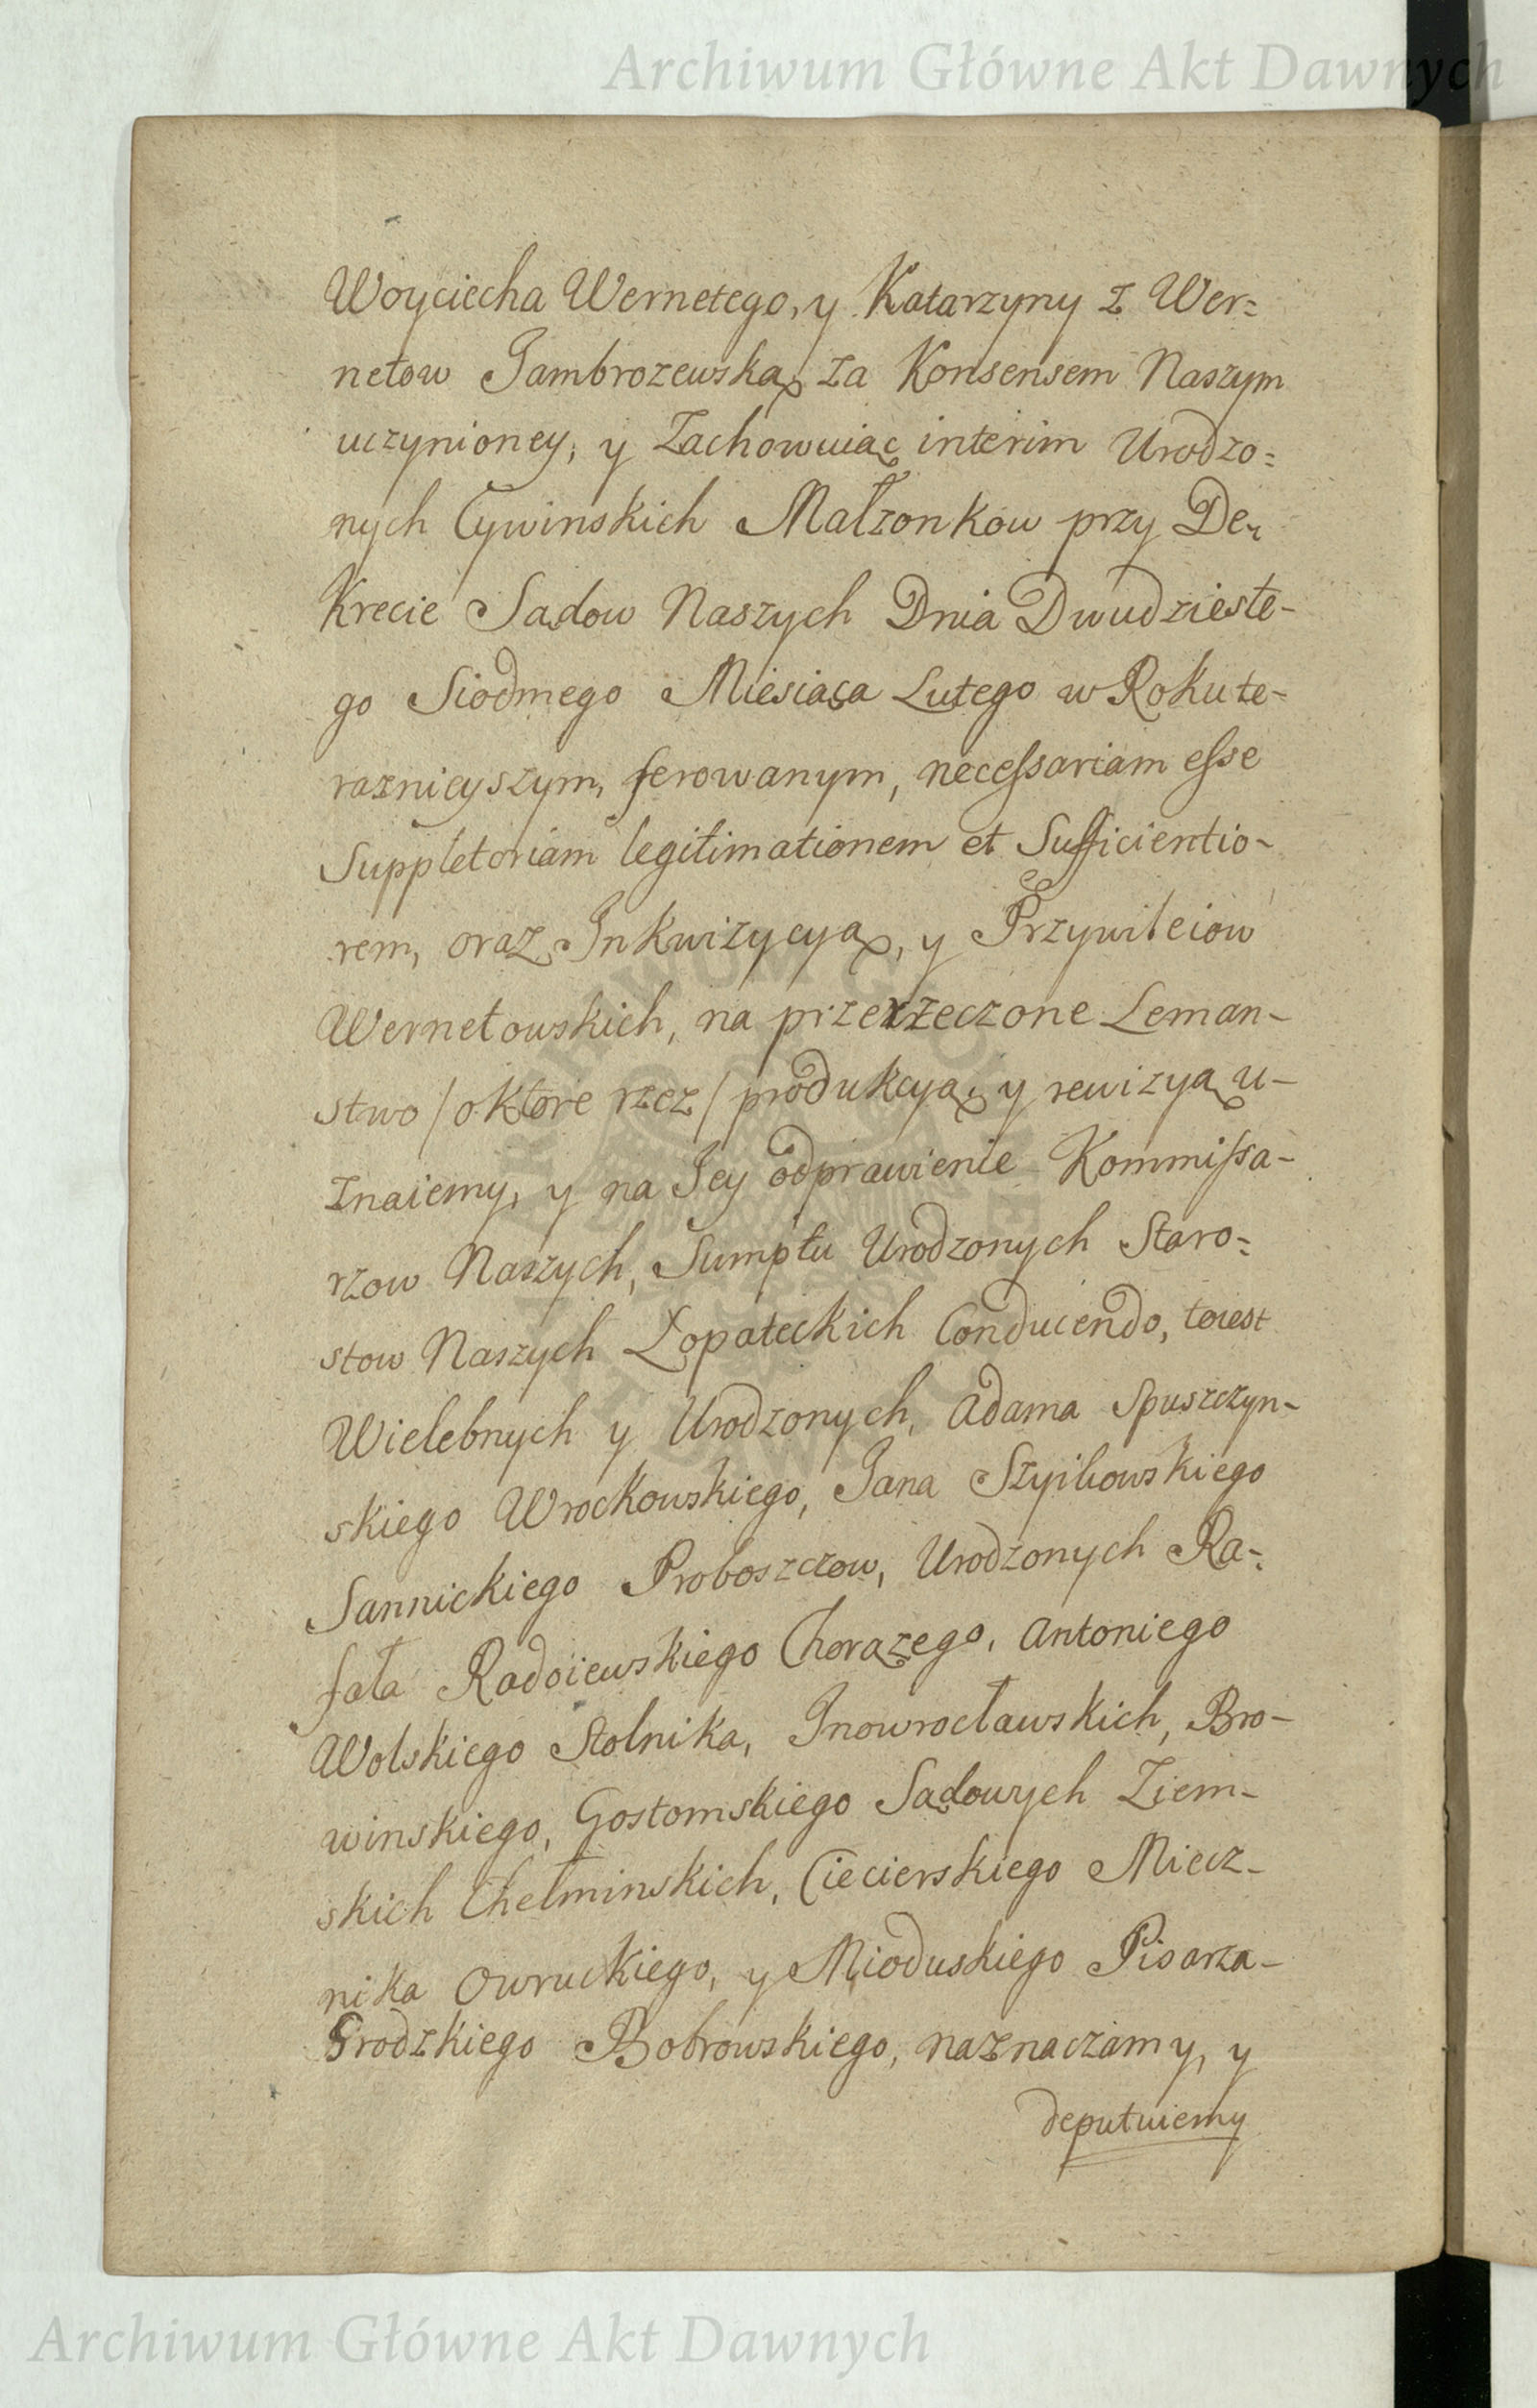 Archiwum Główne Akt Dawnych
Woyciecha Wernetego, y Katarzyny z Wer=
netow Jambrozewską, za Konsensem Naszym
uczynioney, y Zachowuiąc interim Urodzo=
nych Cywinskich Małzonkow przy De=
Krecie Sądow Naszych Dnia Dwudzieste-
go Siodmego Miesiąca Lutego w Roku te-
raznieyszym, ferowanym, necessariam esse
Suppletoriam legitimationem et Sufficientio-
rem, oraz Inkwizycyą, y Przywileiow
Wernetowskich, na przerzeczone Leman-
stwo / o ktore rzcz / produkcyą, y rewizyą u-
znaiemy, y na Jey odprawienie Kommissa-
rzow Naszych, Sumptu Urodzonych Staro=
stow Naszych Łopateckich Conducendo, toiest
Wielebnych y Urodzonych, Adama Spuszczyn-
skiego Wrockowskiego, Jana
Sannickiego Proboszczow, Urodzonych Ra=
fała Radoiewskiego Chorązego, Antoniego
Wolskiego Stolnika, Inowrocławskich, Bro-
winskiego, Gostomskiego Sądowych Ziem-
skich Chełminskich, Ciecierskiego Miecz-
nika Owruckiego, y Mioduskiego Pisarza-
Grodzkiego Bobrowskiego, naznaczamy, y
deputuiemy
Archiwum Główne Akt Dawnych